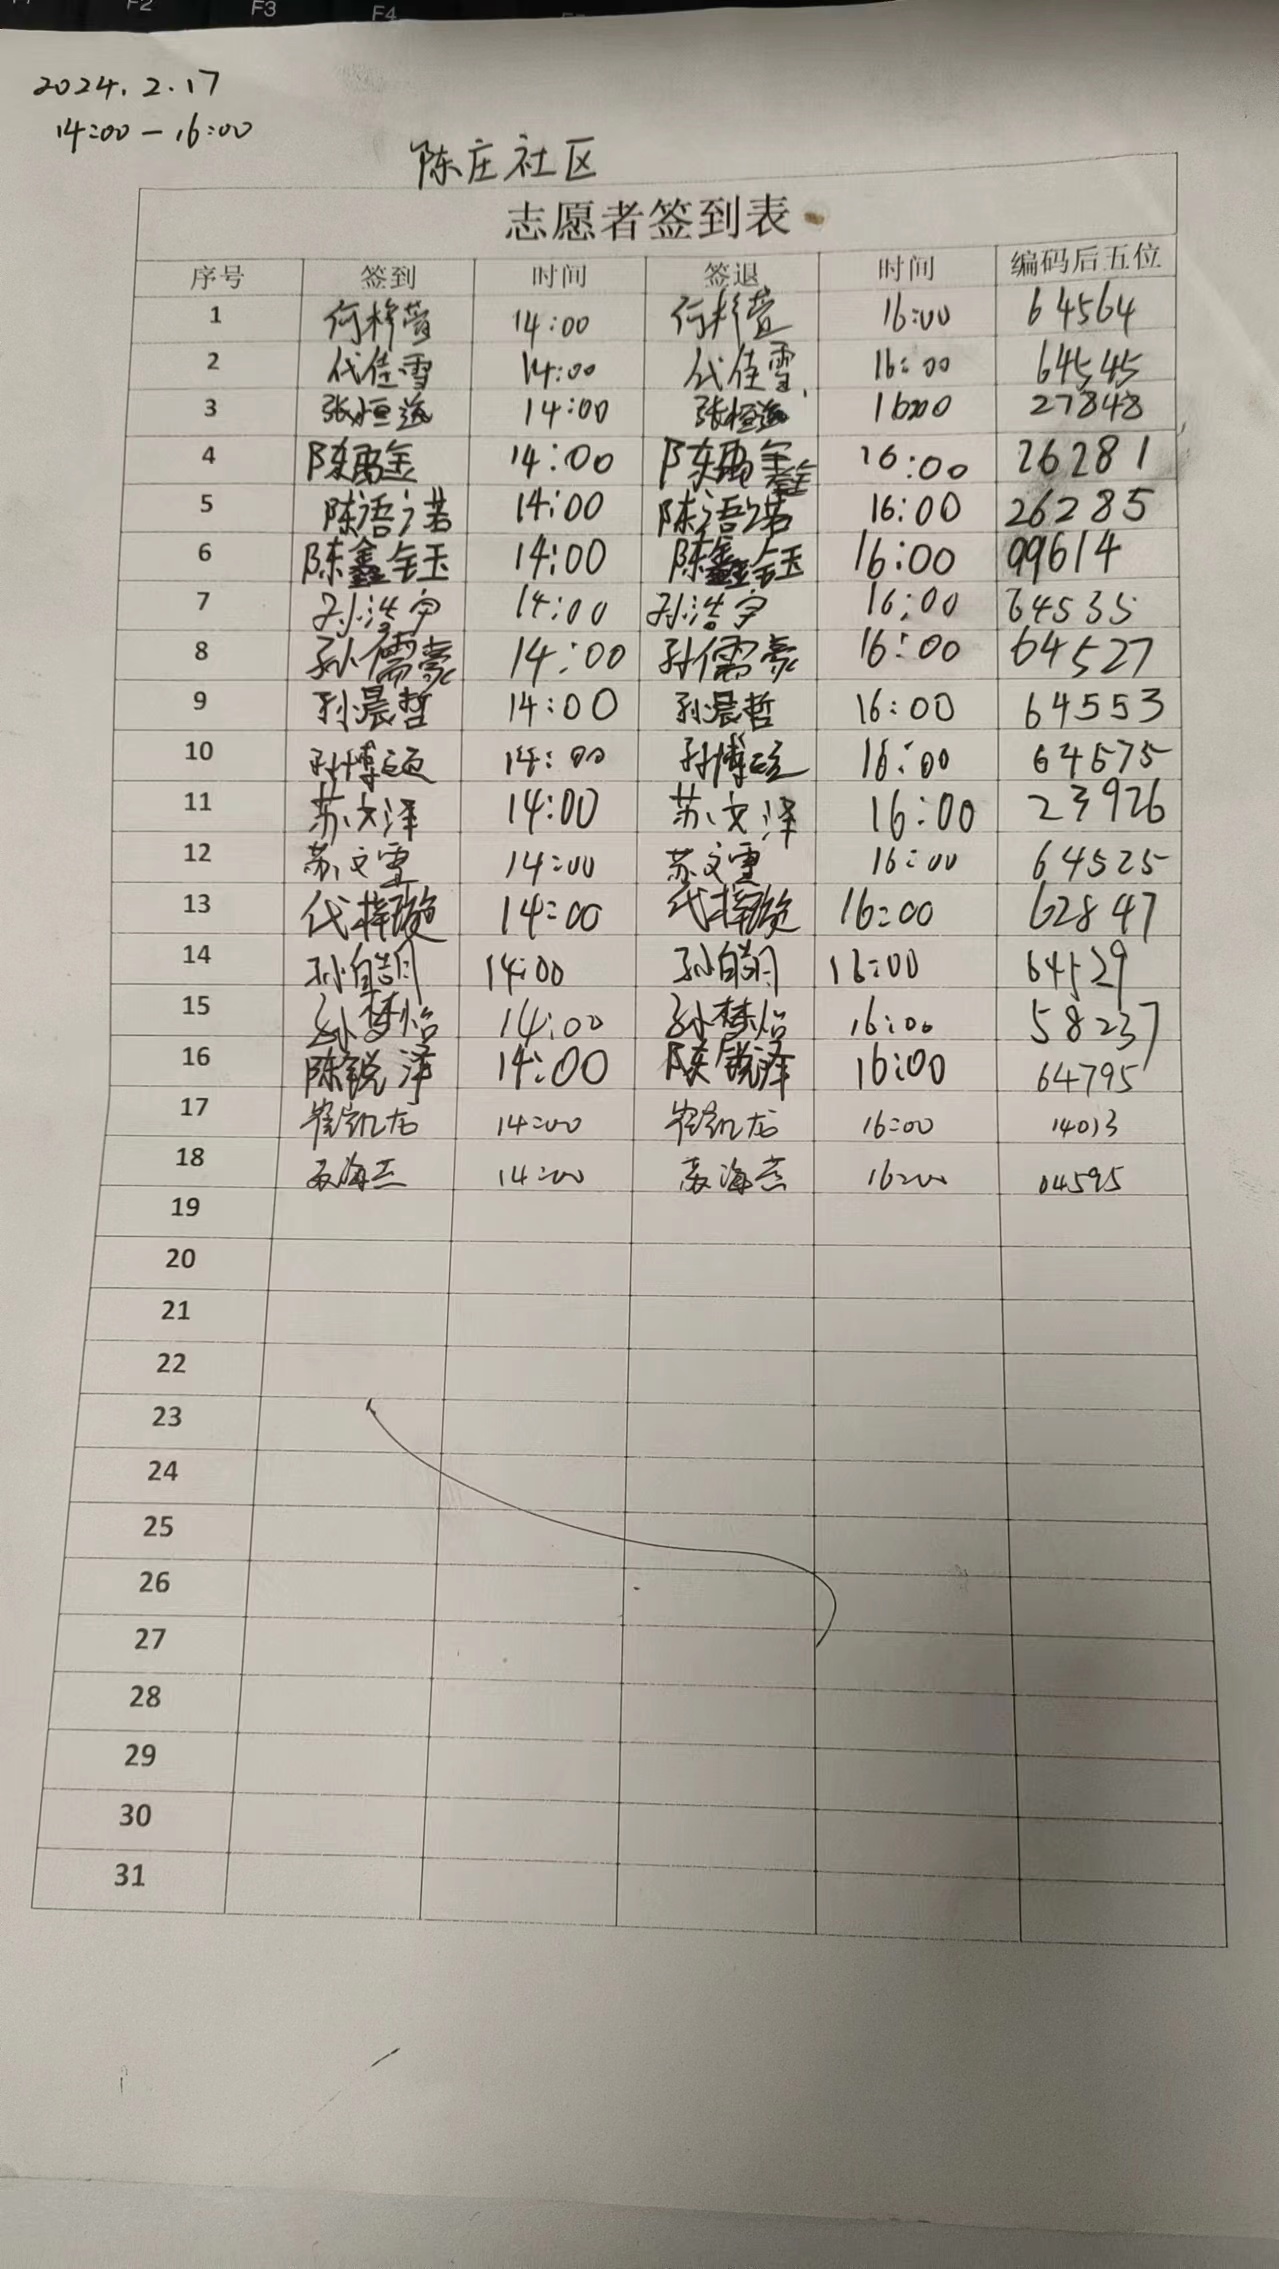 F2 F3 F4
2024.2.17
14:00—16:00
陈庄社区
志愿者签到表
序号 签到 时间 签退 时间 编码后五位
1 何梓萱 14:00 何梓萱 16:00 64564
2 代佳雪 14:00 代佳雪 16:00 64545
3 张恒 14:00 张恒 16:00 27848
4 陈禹 14:00 陈禹 16:00 26281
5 陈语诺 14:00 陈语诺 16:00 26285
6 陈鑫钰 14:00 陈鑫钰 16:00 09614
7 孙浩宇 14:00 孙浩宇 16:00 64535
8 孙儒豪 14:00 孙儒豪 16:00 64527
9 孙晨哲 14:00 孙晨哲 16:00 64553
10 孙博 14:00 孙博 16:00 64575
11 苏文泽 14:00 苏文泽 16:00 23926
12 苏文雪 14:00 苏文雪 16:00 64525
13 代梓璇 14:00 代梓璇 16:00 62847
14 孙皓月 14:00 孙皓月 16:00 64529
15 孙梦怡 14:00 孙梦怡 16:00 58237
16 陈锐泽 14:00 陈锐泽 16:00 64795
17 崔凯龙 14:00 崔凯龙 16:00 14013
18 海燕 14:00 海燕 16:00 04595
19
20
21
22
23
24
25
26
27
28
29
30
31